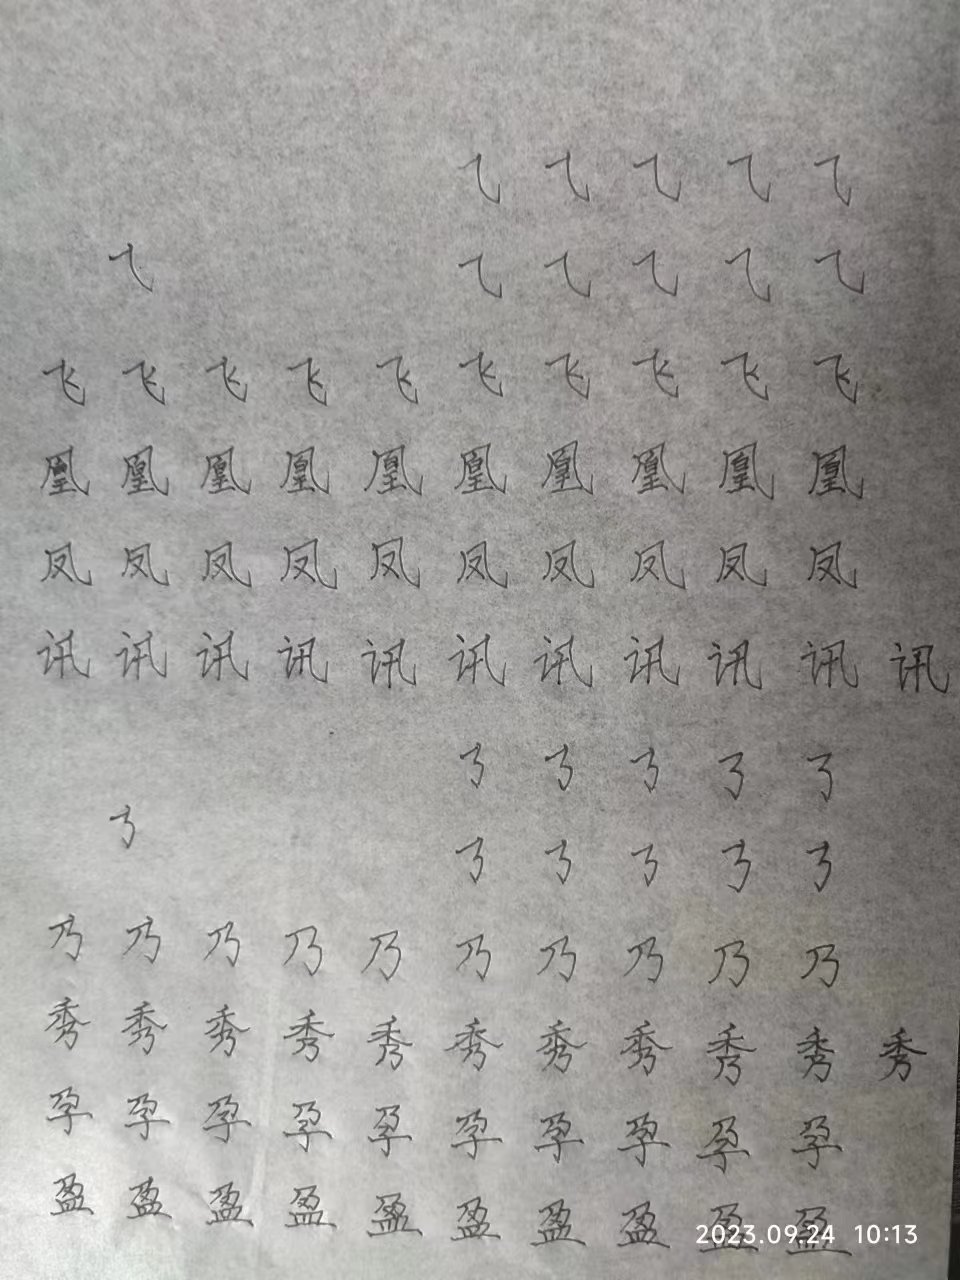 ⺄ ⺄ ⺄ ⺄ ⺄
⺄
⺄ ⺄ ⺄ ⺄ ⺄
飞 飞 飞 飞 飞 飞 飞 飞 飞 飞
凰 凰 凰 凰 凰 凰 凰 凰 凰 凰
凤 凤 凤 凤 凤 凤 凤 凤 凤 凤
讯 讯 讯 讯 讯 讯 讯 讯 讯 讯 讯
㇡ ㇡ ㇡ ㇡ ㇡
㇡
㇡ ㇡ ㇡ ㇡ ㇡
乃 乃 乃 乃 乃 乃 乃 乃 乃 乃
秀 秀 秀 秀 秀 秀 秀 秀 秀 秀 秀
孕 孕 孕 孕 孕 孕 孕 孕 孕 孕
盈 盈 盈 盈 盈 盈 盈 盈 盈 盈
2023.09.24 10:13